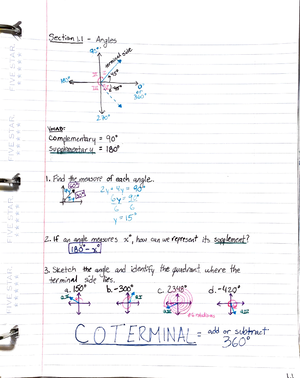 Section 1.1 - Angles
90°
terminal side
45°
180°
0°
or
360°
-45°
270°
VOCAB:
complementary = 90°
supplementary = 180°
1. Find the measure of each angle.
2y + 4y = 90°
6y = 90°
6 6
y = 15°
2. If an angle measures x°, how can we represent its supplement?
180° - x°
3. Sketch the angle and identify the quadrant where the
terminal side lies.
a. 150° b. -300° c. 2348° d. -420°
COTERMINAL = add or subtract
360°
FIVE STAR
FIVE STAR
FIVE STAR
FIVE STAR